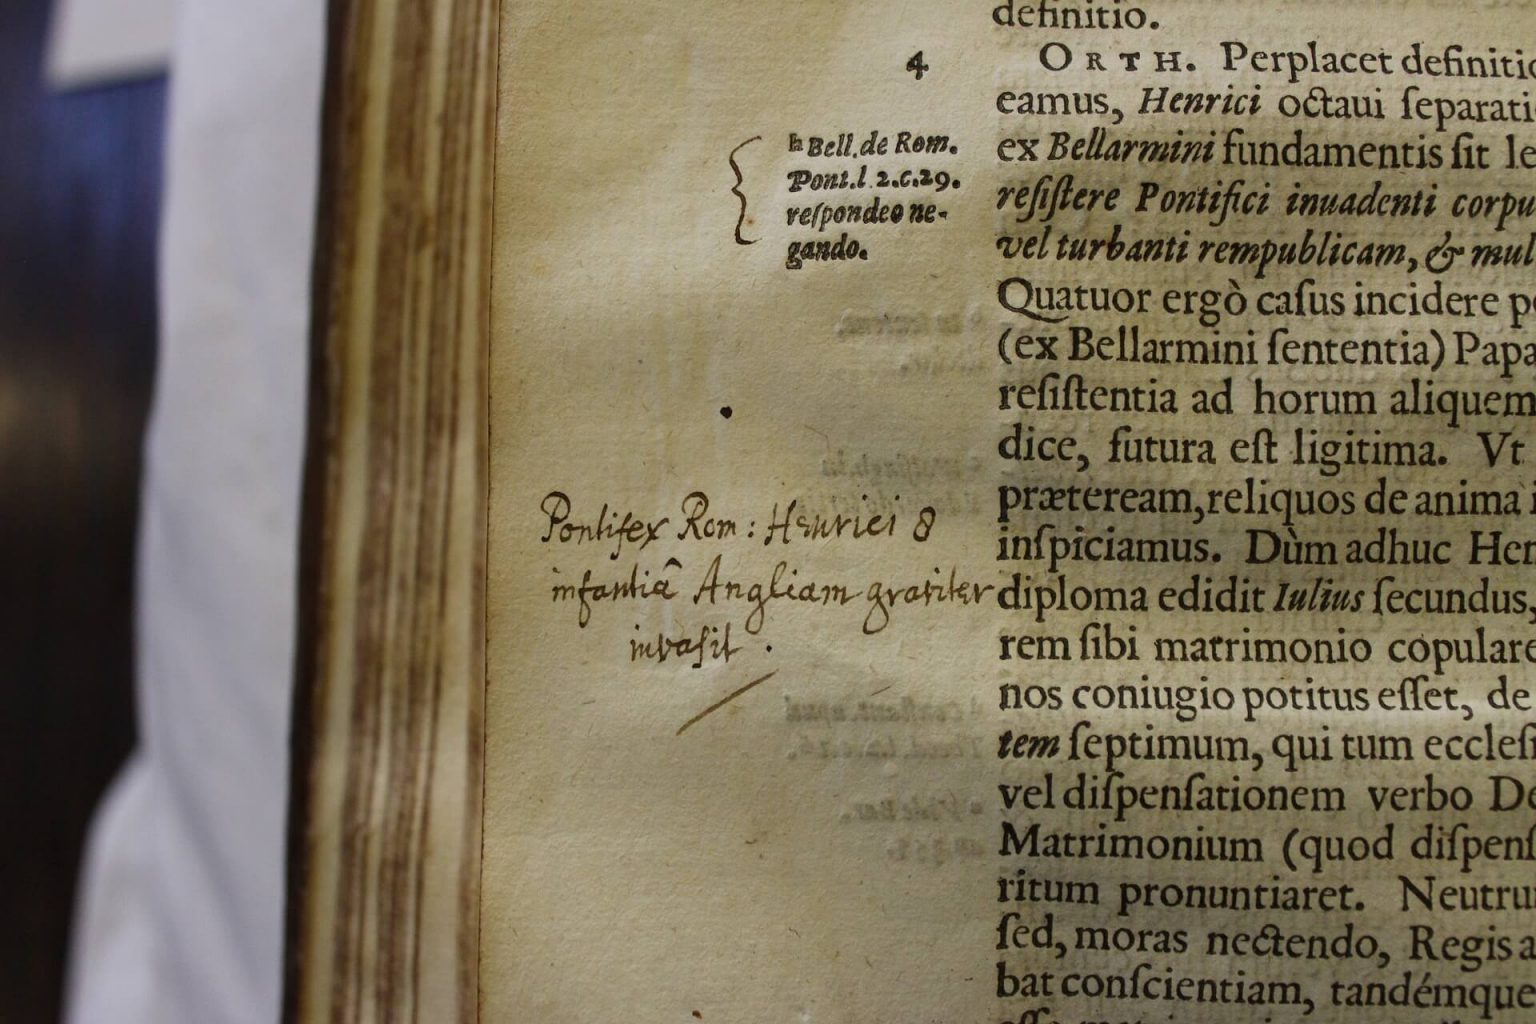 definitio.
4
ORTH. Perplacet definitio
eamus, Henrici octaui ſeparati
h Bell. de Rom.
Pont. l. 2. c. 29.
reſpondeo ne-
gando.
ex Bellarmini fundamentis ſit le
reſiſtere Pontifici inuadenti corpu
vel turbanti rempublicam, & mul
Quatuor ergò caſus incidere po
(ex Bellarmini ſententia) Papa
reſiſtentia ad horum aliquem
dice, futura eſt ligitima. Vt
præteream, reliquos de anima i
Pontifex Rom: Henrici 8
infantiâ Angliam graviter
invasit.
inſpiciamus. Dùm adhuc Hen
diploma edidit Iulius ſecundus,
rem ſibi matrimonio copulare
nos coniugio potitus eſſet, de
tem ſeptimum, qui tum eccleſi
vel diſpenſationem verbo De
Matrimonium (quod diſpenſ
ritum pronuntiaret. Neutru
ſed, moras nectendo, Regis a
bat conſcientiam, tandémque